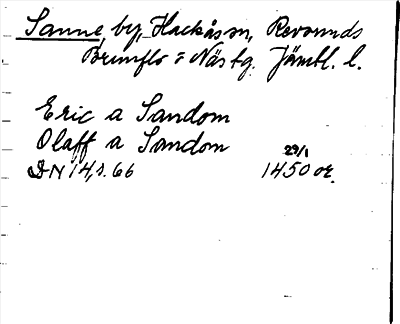 Sanne, by, Hackås sn, Revsunds
Brunflo o Näs tg. Jämtl. l.
Eric a Sandom
Olaff a Sandom
DN 14, s. 66 29/1 1450 or.